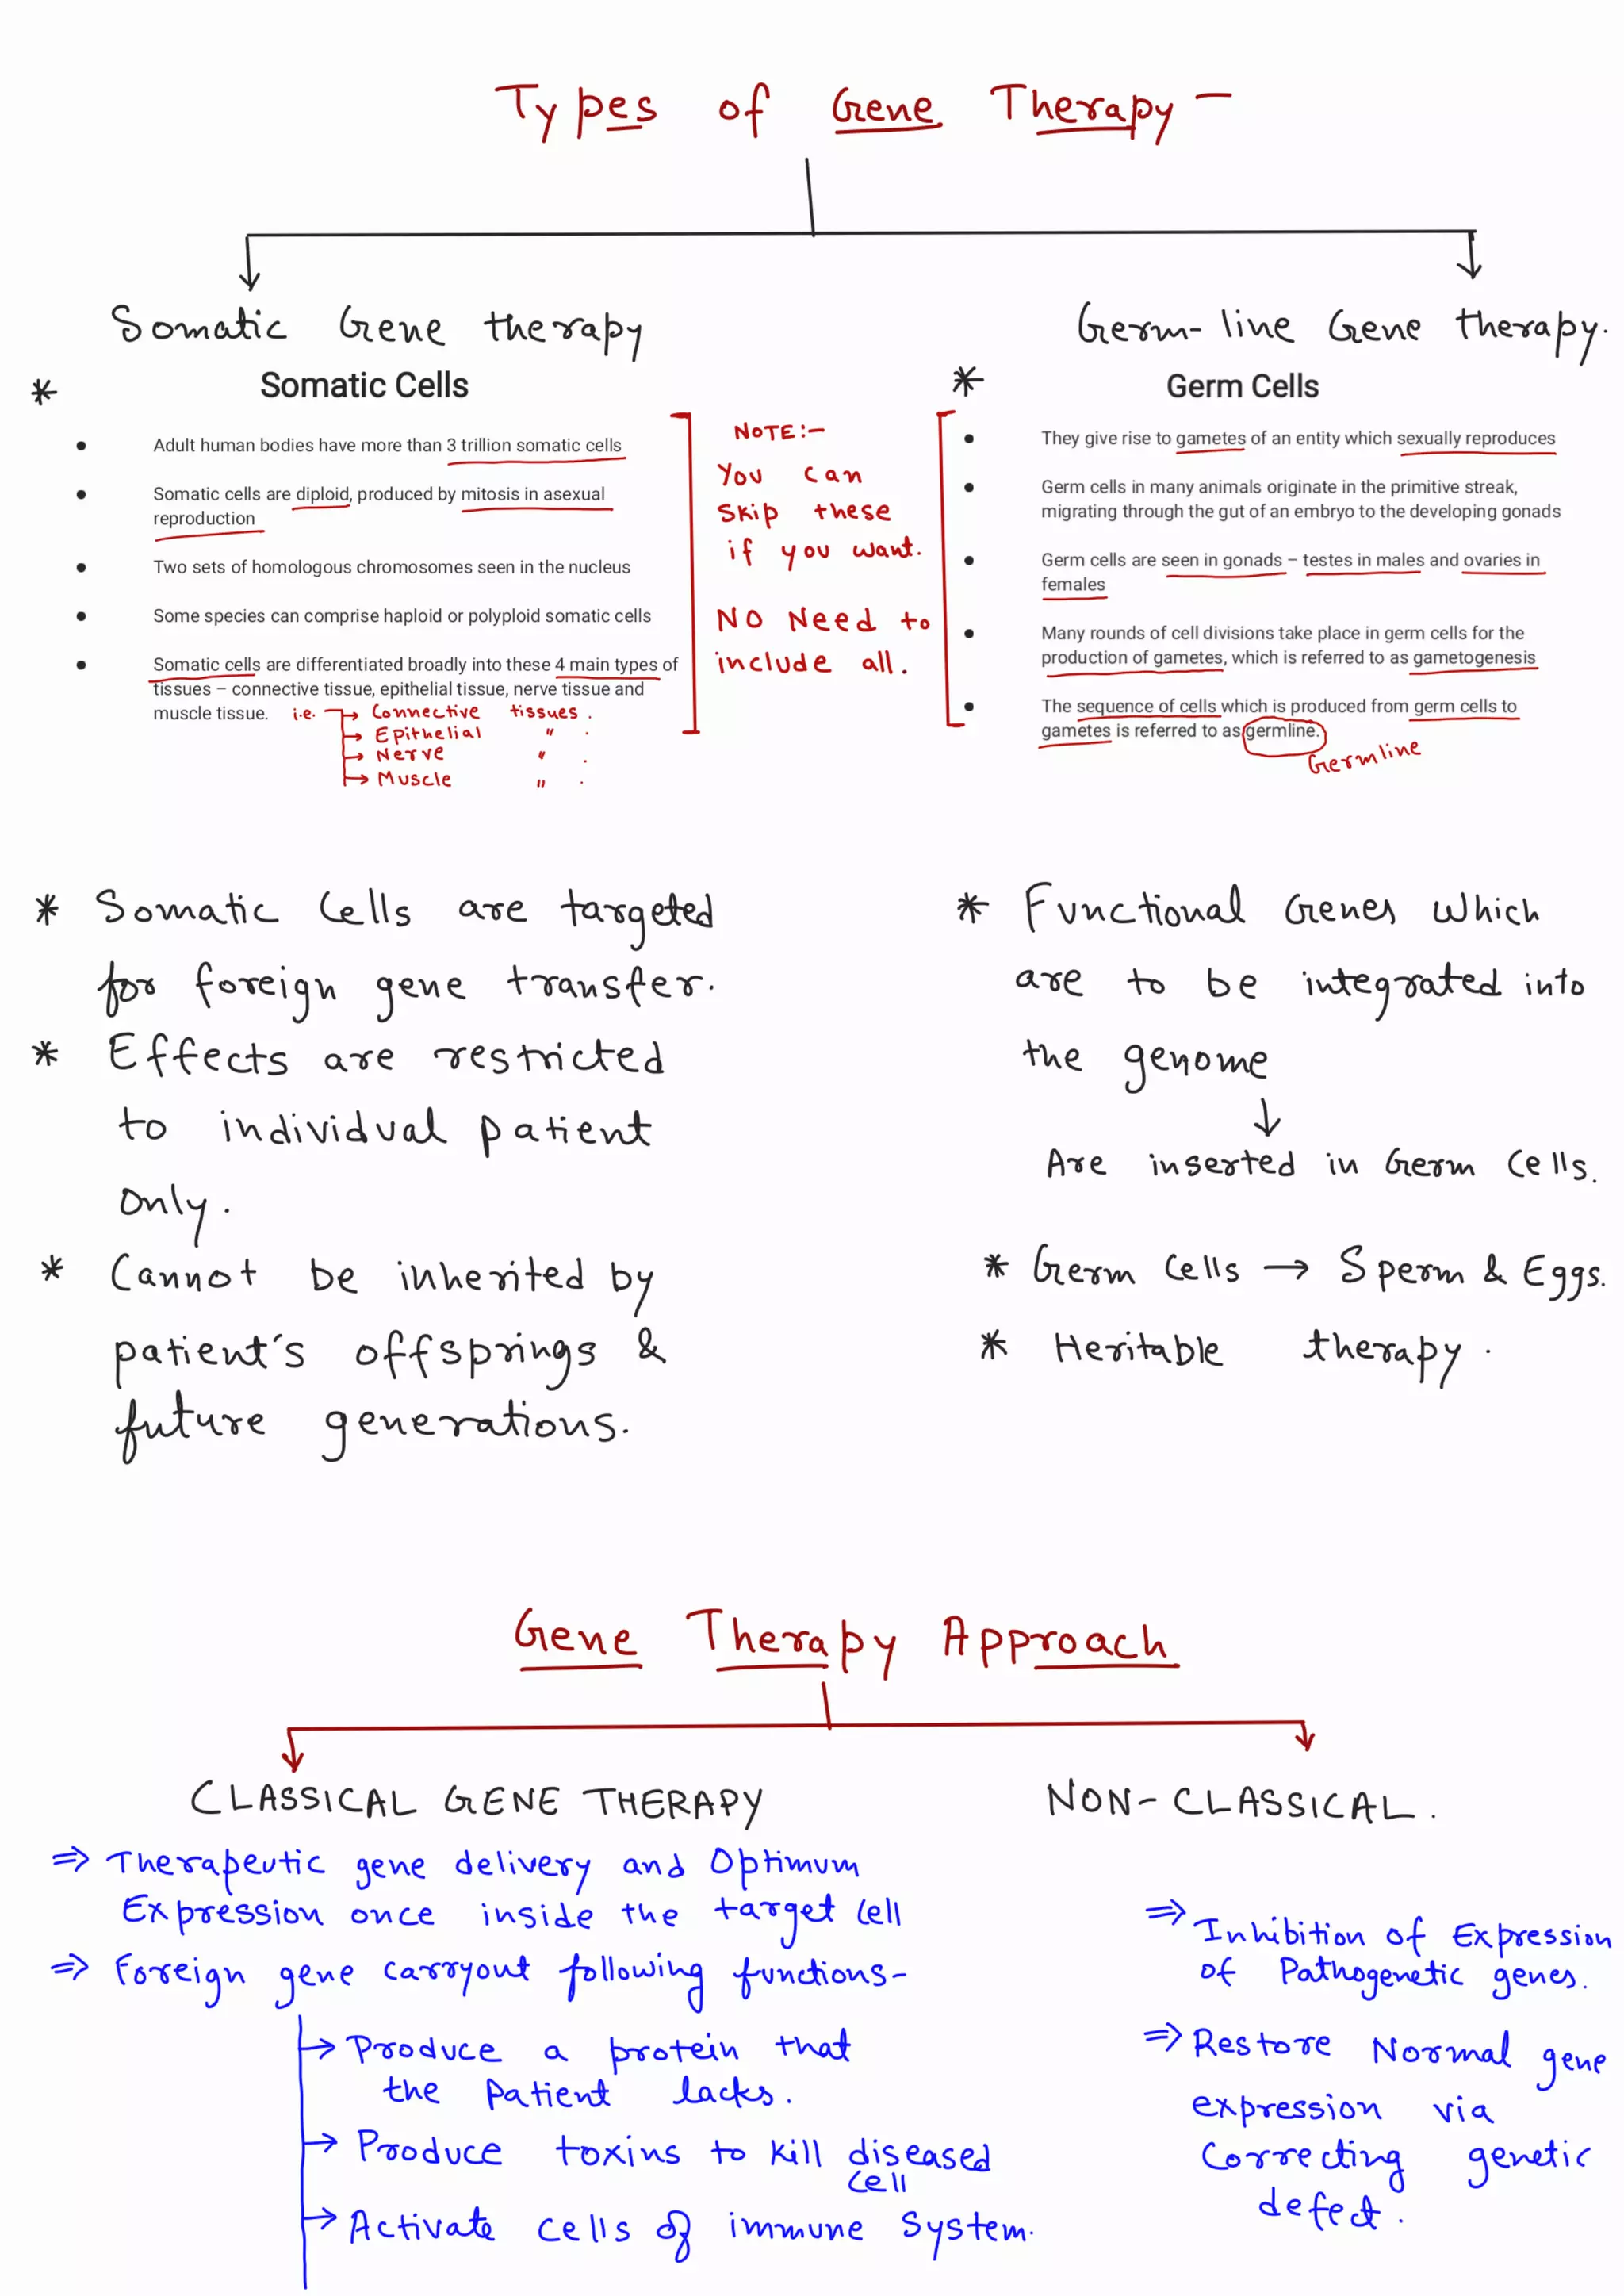 Types of Gene Therapy -
Somatic Gene therapy
* Somatic Cells
• Adult human bodies have more than 3 trillion somatic cells
• Somatic cells are diploid, produced by mitosis in asexual
reproduction
• Two sets of homologous chromosomes seen in the nucleus
• Some species can comprise haploid or polyploid somatic cells
• Somatic cells are differentiated broadly into these 4 main types of
tissues – connective tissue, epithelial tissue, nerve tissue and
muscle tissue. i.e. → Connective tissues.
→ Epithelial " .
→ Nerve " .
→ Muscle " .
NOTE:-
You can
Skip these
if you want.
NO Need to
include all.
Germ-line Gene therapy.
* Germ Cells
• They give rise to gametes of an entity which sexually reproduces
• Germ cells in many animals originate in the primitive streak,
migrating through the gut of an embryo to the developing gonads
• Germ cells are seen in gonads – testes in males and ovaries in
females
• Many rounds of cell divisions take place in germ cells for the
production of gametes, which is referred to as gametogenesis
• The sequence of cells which is produced from germ cells to
gametes is referred to as germline.
Germline
* Somatic Cells are targeted
for foreign gene transfer.
* Effects are restricted
to individual patient
only.
* Cannot be inherited by
patient's offsprings &
future generations.
* Functional Genes which
are to be integrated into
the genome
↓
Are inserted in Germ Cells.
* Germ Cells → Sperm & Eggs.
* Heritable therapy.
Gene Therapy Approach
CLASSICAL GENE THERAPY
⇒ Therapeutic gene delivery and Optimum
Expression once inside the target Cell
⇒ Foreign gene carryout following functions-
→ Produce a protein that
the Patient lacks.
→ Produce toxins to kill diseased
Cell
→ Activate cells of immune System.
NON-CLASSICAL.
⇒ Inhibition of Expression
of Pathogenetic genes.
⇒ Restore Normal gene
expression via
Correcting genetic
defect.